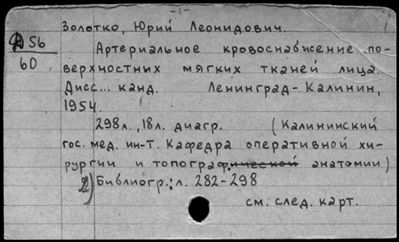 Золотко, Юрий Леонидович.
Д 56
60
Артериальное кровоснабжение по-
верхностных мягких тканей лица.
Дисс... канд. Ленинград-Калинин,
1954.
298л., 18л. диагр. (Калининский
гос. мед. ин-т. Кафедра оперативной хи-
рургии и топографической анатомии)
2) Библиогр.: л. 282-298
см. след. карт.